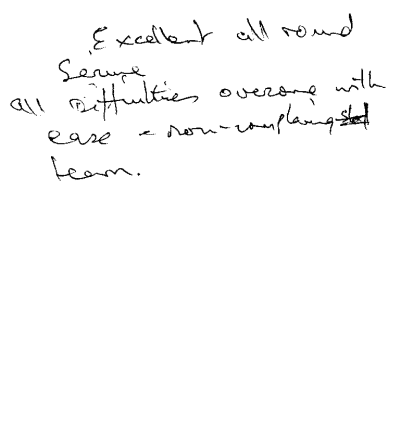 Excellent all round
Service
all Difficulties overcome with
ease - non-complaining
team.